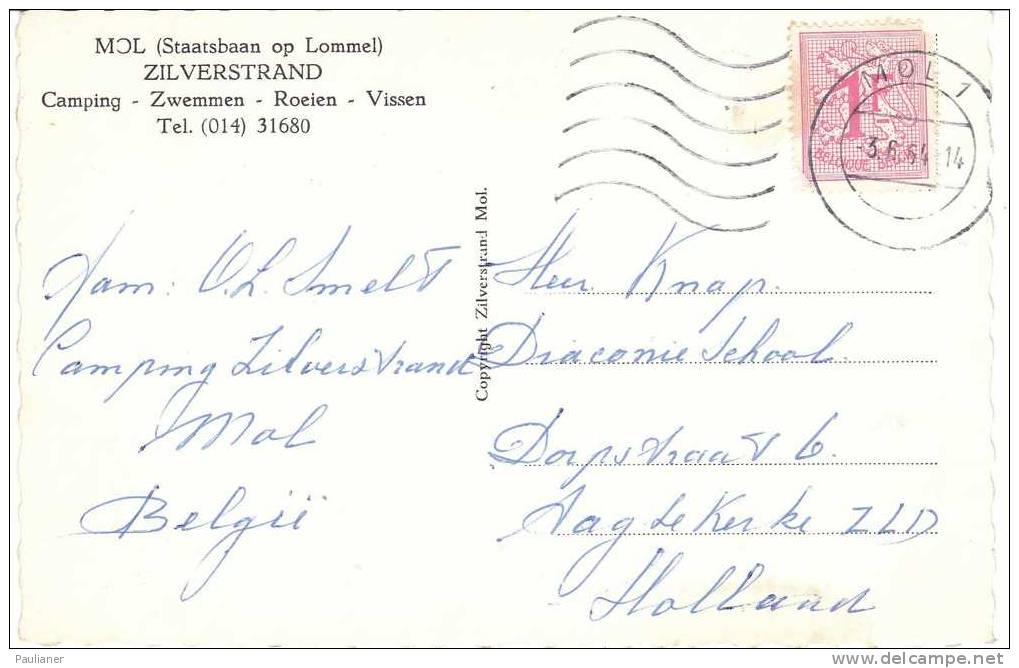 MOL (Staatsbaan op Lommel)
ZILVERSTRAND
Camping - Zwemmen - Roeien - Vissen
Tel. (014) 31680
MOL 1
-3.6.64 14
1F
BELGIQUE BELGIE
Copyright Zilverstrand Mol.
Nam: O.L. Smelt
Camping Zilverstrand
Mol
België
Heer Knap.
Diaconie School.
Dorpstraat 6.
Aagtekerke ZLD
Holland
Paulianer
www.delcampe.net